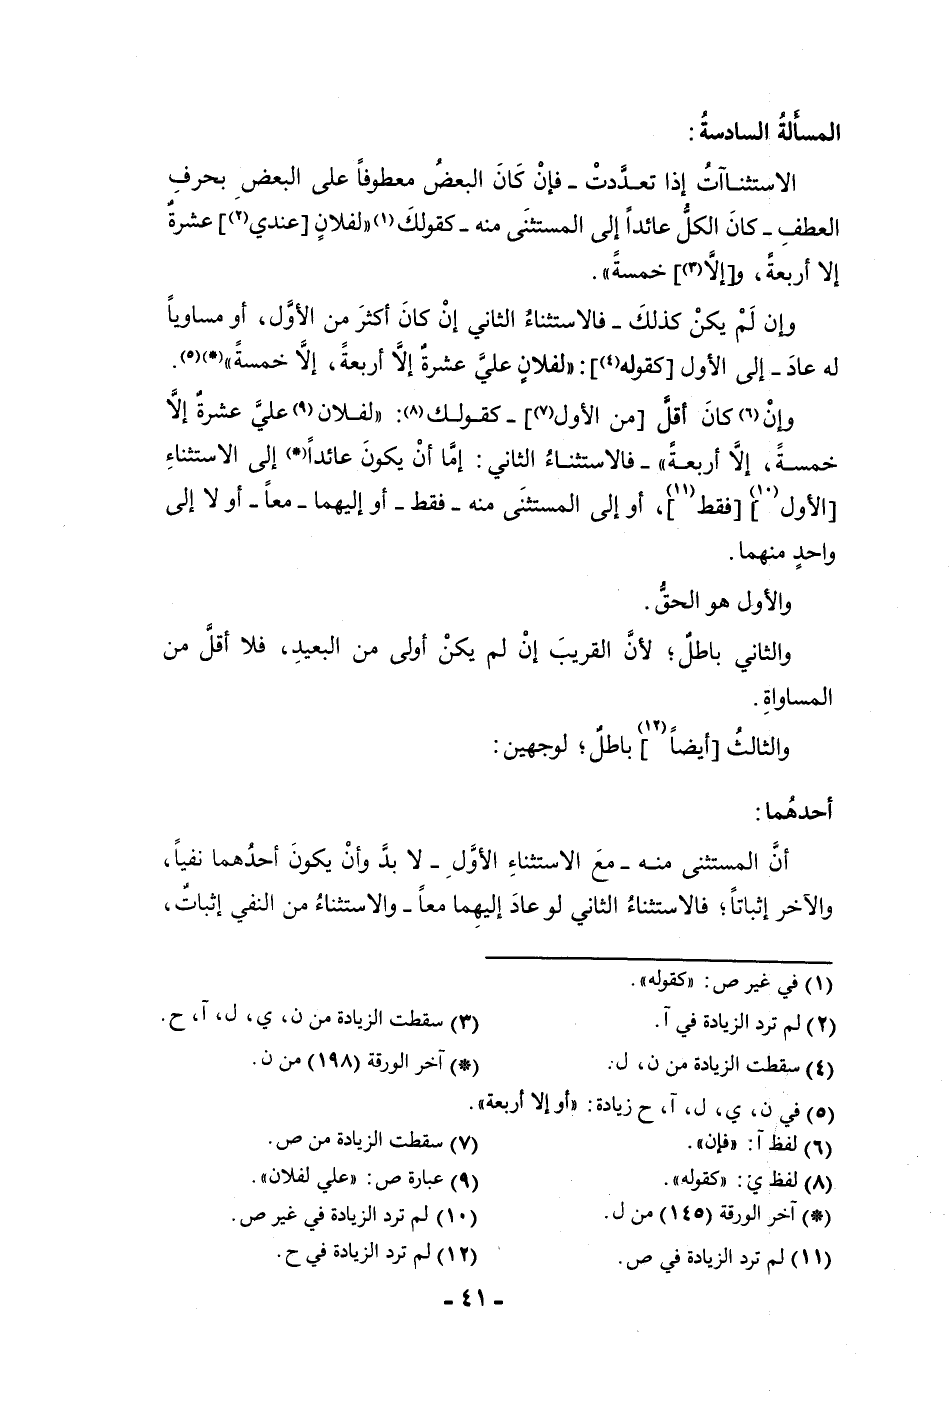 المسأَلةُ السادسةُ:
الاستثنـاآتُ إذا تعـدَّدتْ ـ فإنْ كَانَ البعضُ معطوفاً على البعضِ بحرفِ
العطفِ ـ كانَ الكلُّ عائداً إلى المستثنَى منه ـ كقولكَ(١) «لفلانٍ [عندي(٢)] عشرةٌ
إلا أربعةً، و[إلَّا(٣)] خمسةً».
وإن لَمْ يكنْ كذلكَ ـ فالاستثناءُ الثاني إنْ كانَ أكثرَ من الأوَّل، أو مساوياً
له عادَ ـ إلى الأول [كقوله(٤)]: «لفلانٍ عليَّ عشرةٌ إلَّا أربعةً، إلَّا خمسةً»(*)(٥).
وإنْ(٦) كانَ أقلَّ [من الأول(٧)] ـ كقـولـك(٨): «لفـلان(٩) عليَّ عشرةٌ إلَّا
خمسـةً، إلَّا أربعـةً» ـ فالاستثنـاءُ الثاني: إمَّا أنْ يكونَ عائداً(*) إلى الاستثناءِ
[الأول(١٠)] [فقط(١١)]، أو إلى المستثنَى منه ـ فقط ـ أو إليهما ـ معاً ـ أو لا إلى
واحدٍ منهما.
والأول هو الحقُّ.
والثاني باطلٌ؛ لأنَّ القريبَ إنْ لم يكنْ أولى من البعيدِ، فلا أقلَّ من
المساواةِ.
والثالثُ [أيضاً(١٢)] باطلٌ؛ لوجهين:
أحدهُما:
أنَّ المستثنى منـه ـ معَ الاستثناءِ الأوَّلِ ـ لا بدَّ وأنْ يكونَ أحدُهما نفياً،
والآخر إثباتاً؛ فالاستثناءُ الثاني لو عادَ إليهِما معاً ـ والاستثناءُ من النفي إثباتٌ،
(١) في غير ص: «كقوله».
(٢) لم ترد الزيادة في آ. (٣) سقطت الزيادة من ن، ي، ل، آ، ح.
(٤) سقطت الزيادة من ن، ل. (*) آخر الورقة (١٩٨) من ن.
(٥) في ن، ي، ل، آ، ح زيادة: «أو إلا أربعة».
(٦) لفظ آ: «فإن». (٧) سقطت الزيادة من ص.
(٨) لفظ ي: «كقوله». (٩) عبارة ص: «علي لفلان».
(*) آخر الورقة (١٤٥) من ل. (١٠) لم ترد الزيادة في غير ص.
(١١) لم ترد الزيادة في ص. (١٢) لم ترد الزيادة في ح.
ـ ٤١ ـ